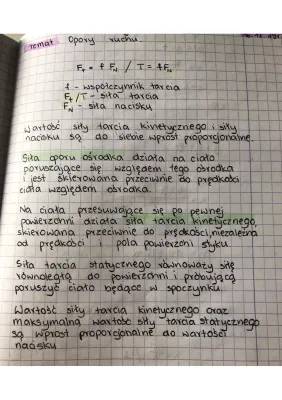 Temat Opory ruchu.
F_T = f F_N / T = f F_N
f - współczynnik tarcia
F_T / T - siła tarcia
F_N - siła nacisku
Wartość siły tarcia kinetycznego i siły
nacisku są do siebie wprost proporcjonalne.
Siła oporu ośrodka działa na ciało
poruszające się względem tego ośrodka
i jest skierowana przeciwnie do prędkości
ciała względem ośrodka.
Na ciała przesuwające się po pewnej
powierzchni działa siła tarcia kinetycznego,
skierowana przeciwnie do prędkości, niezależna
od prędkości i pola powierzchni styku
Siła tarcia statycznego równoważy siłę
równoległą do powierzchni i próbującą
poruszyć ciało będące w spoczynku.
Wartość siły tarcia kinetycznego oraz
maksymalna wartość siły tarcia statycznego
są wprost proporcjonalne do wartości
nacisku